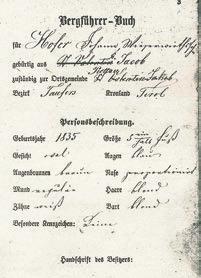 3
Bergführer-Buch
für Hofer Johann,
gebürtig aus St. Valentin Jacob
zuständig zur Ortsgemeinde St. Jakob
Bezirk Taufers Kronland Tirol
Personsbeschreibung.
Geburtsjahr 1835 Größe 5 Fuß
Gesicht oval Augen blau
Augenbrauen braun Nase proportionirt
Mund regulär Haare blond
Zähne weiß Bart blond
Besondere Kennzeichen: Keine
Handschrift des Besitzers: